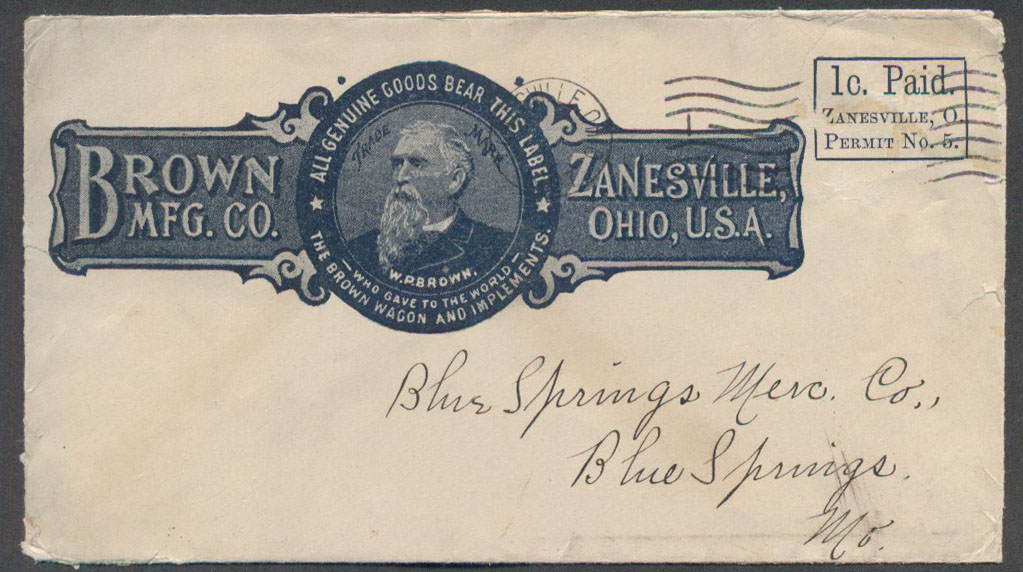 BROWN
MFG. CO.
ALL GENUINE GOODS BEAR THIS LABEL.
TRADE MARK
W.P. BROWN.
WHO GAVE TO THE WORLD
THE BROWN WAGON AND IMPLEMENTS.
ZANESVILLE,
OHIO, U.S.A.
1c. Paid.
ZANESVILLE, O.
PERMIT No. 5.
Blue Springs Merc. Co.,
Blue Springs.
Mo.